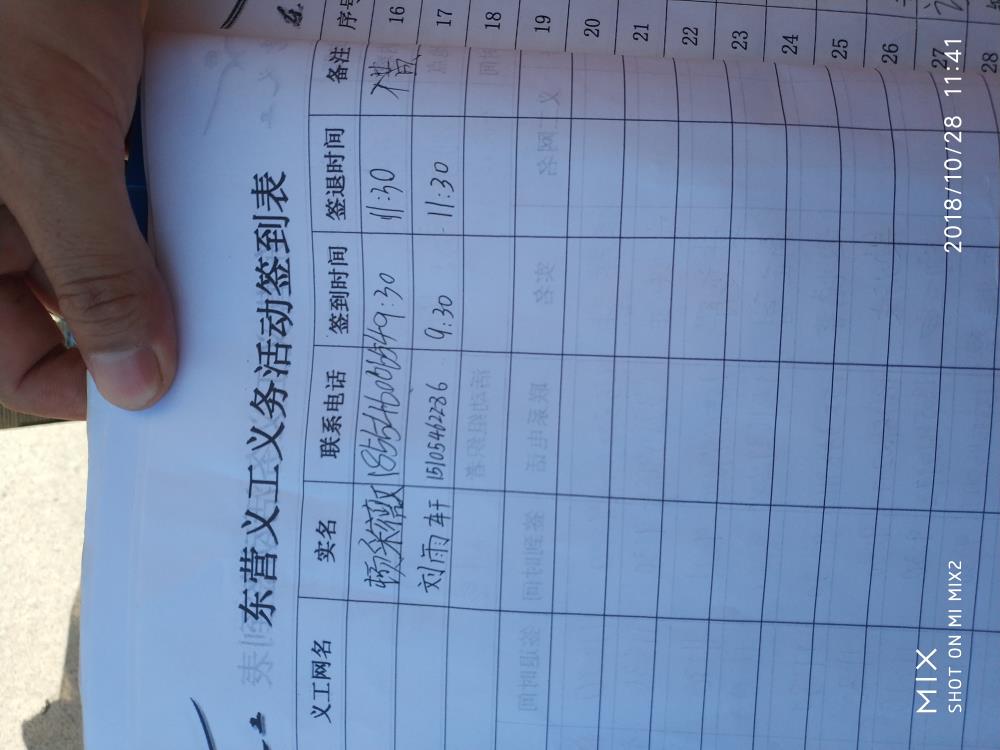 东营义工义务活动签到表
义工网名 实名 联系电话 签到时间 签退时间 备注
9:30 11:30
刘雨轩 15105462286 9:30 11:30
序号
16
17
18
19
20
21
22
23
24
25
26
27
28
2018/10/28 11:41
MIX
SHOT ON MI MIX2